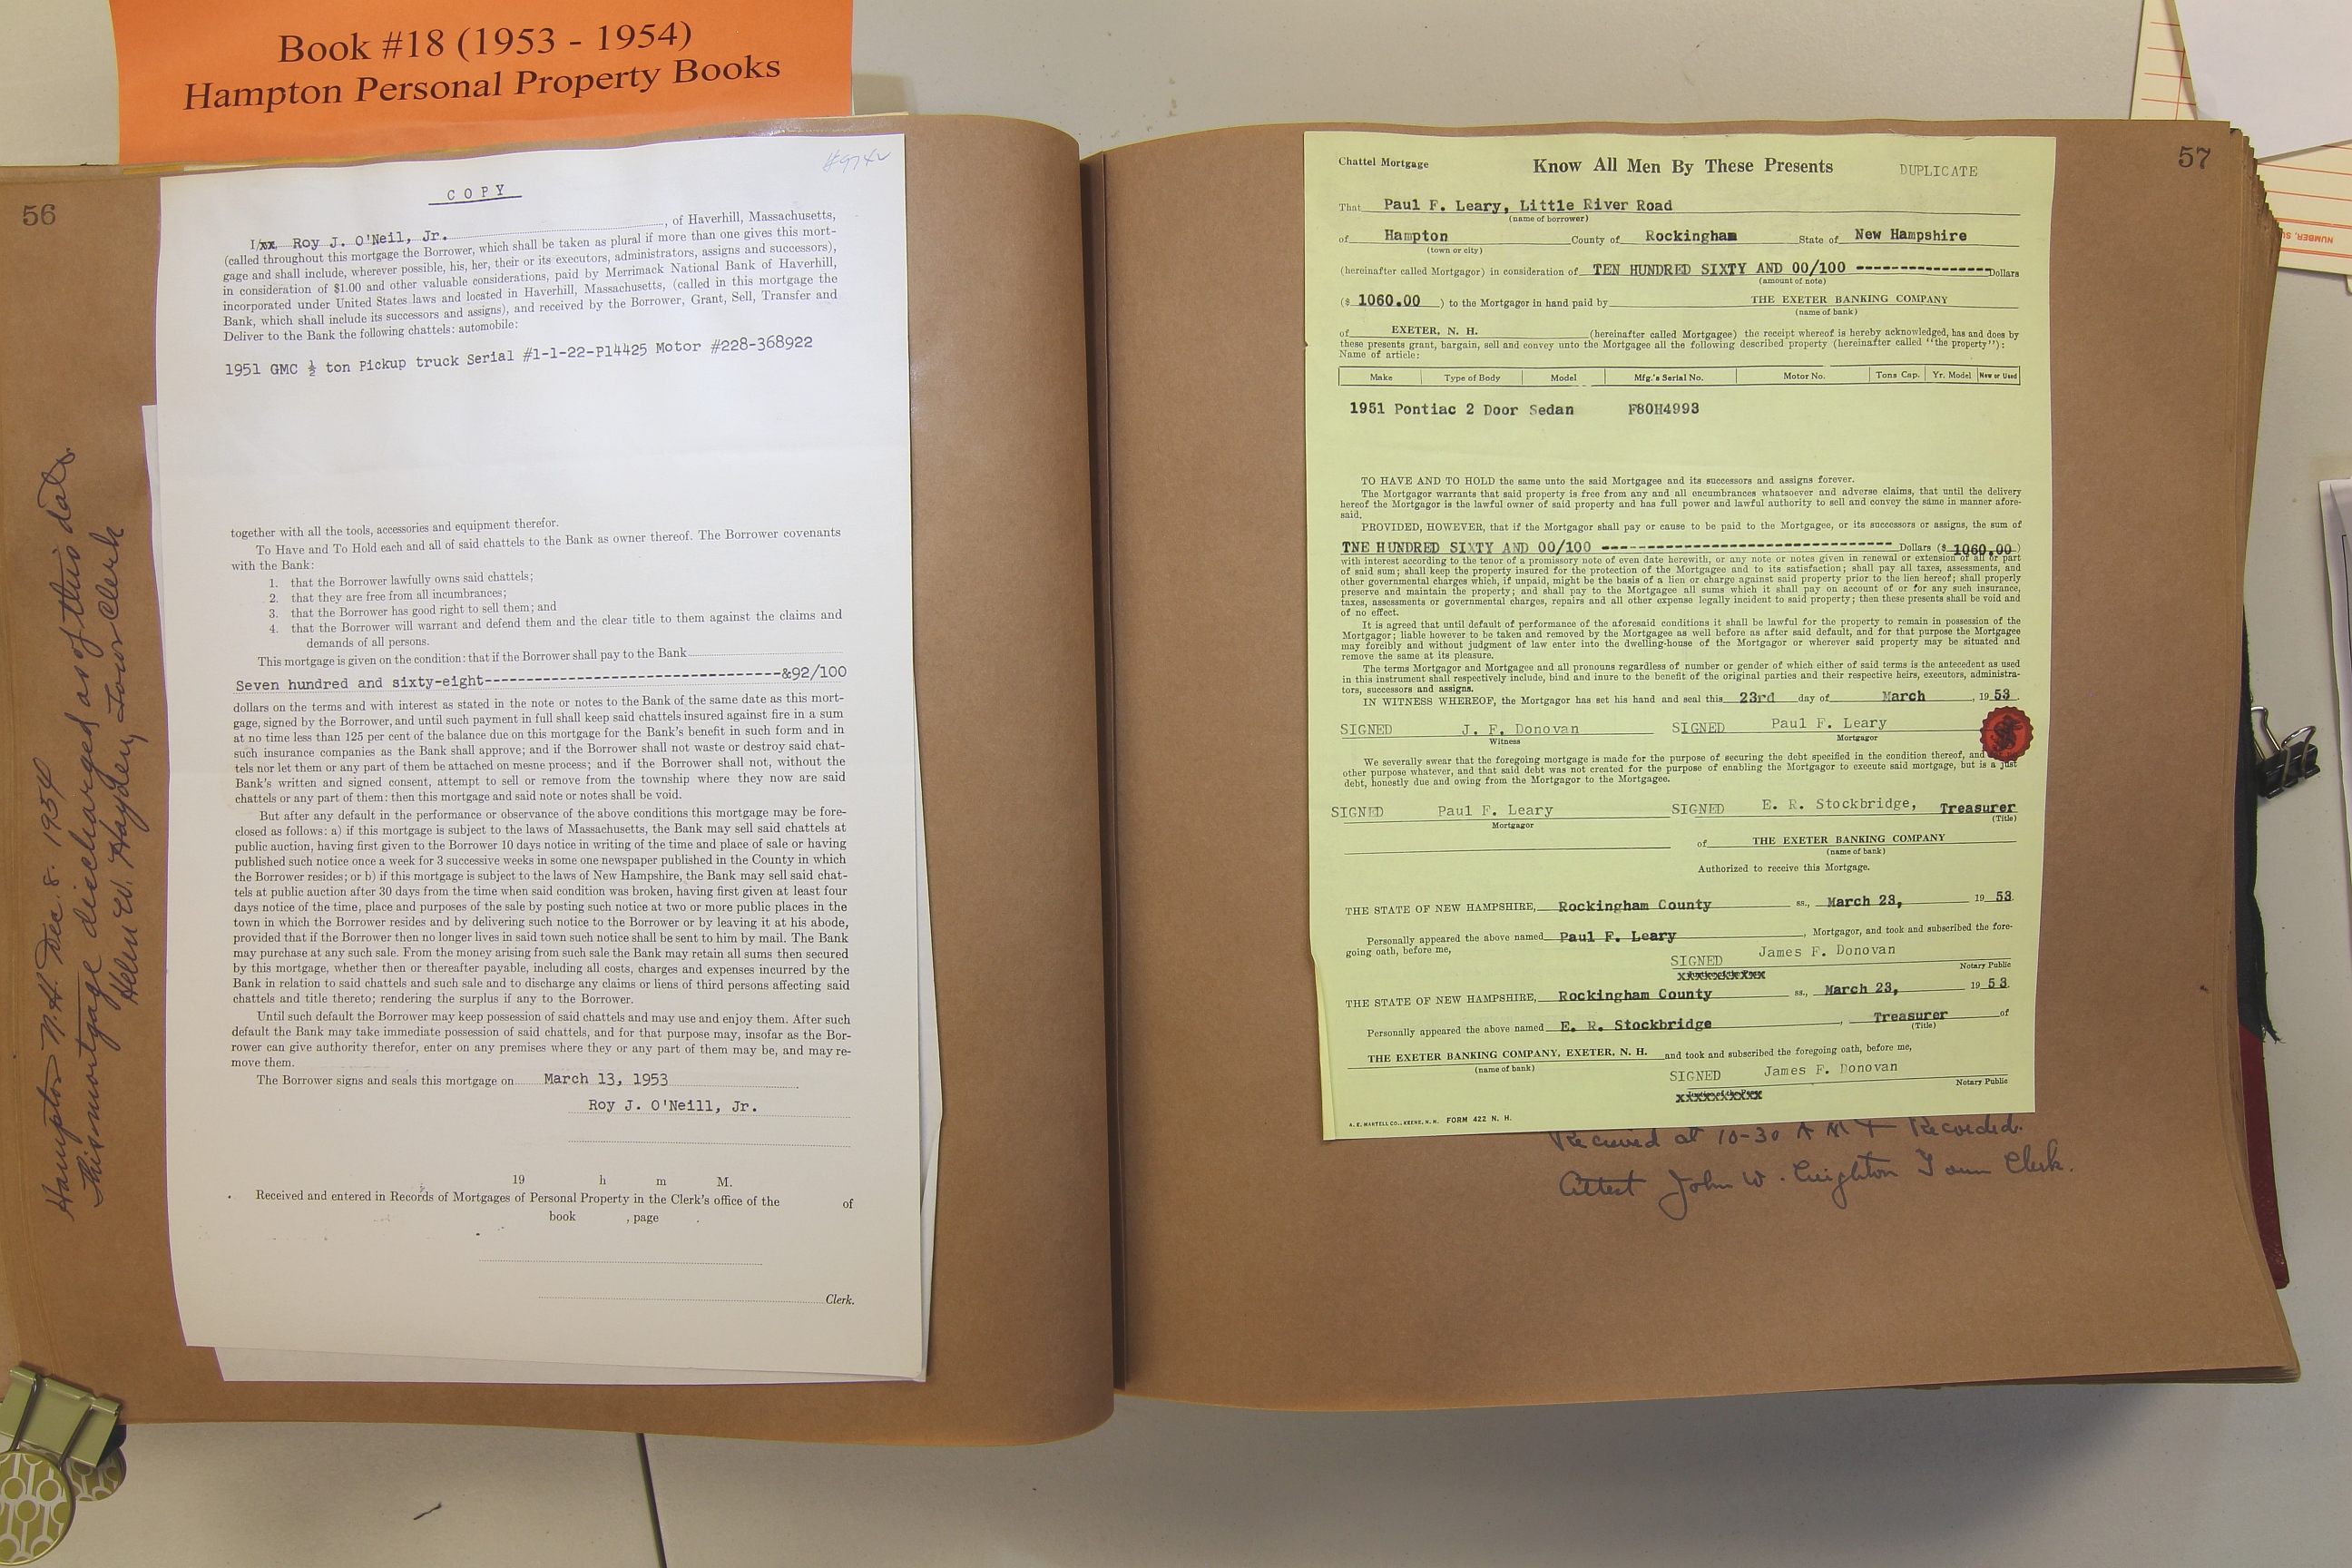 Book #18 (1953 - 1954)
Hampton Personal Property Books
56
COPY
I/xx Roy J. O'Neil, Jr. , of Haverhill, Massachusetts,
(called throughout this mortgage the Borrower, which shall be taken as plural if more than one gives this mort-
gage and shall include, wherever possible, his, her, their or its executors, administrators, assigns and successors),
in consideration of $1.00 and other valuable considerations, paid by Merrimack National Bank of Haverhill,
incorporated under United States laws and located in Haverhill, Massachusetts, (called in this mortgage the
Bank, which shall include its successors and assigns), and received by the Borrower, Grant, Sell, Transfer and
Deliver to the Bank the following chattels: automobile:
1951 GMC ½ ton Pickup truck Serial #1-1-22-P14425 Motor #228-368922
together with all the tools, accessories and equipment therefor.
To Have and To Hold each and all of said chattels to the Bank as owner thereof. The Borrower covenants
with the Bank:
1. that the Borrower lawfully owns said chattels;
2. that they are free from all incumbrances;
3. that the Borrower has good right to sell them; and
4. that the Borrower will warrant and defend them and the clear title to them against the claims and
demands of all persons.
This mortgage is given on the condition: that if the Borrower shall pay to the Bank
Seven hundred and sixty-eight------------------------------------&92/100
dollars on the terms and with interest as stated in the note or notes to the Bank of the same date as this mort-
gage, signed by the Borrower, and until such payment in full shall keep said chattels insured against fire in a sum
at no time less than 125 per cent of the balance due on this mortgage for the Bank's benefit in such form and in
such insurance companies as the Bank shall approve; and if the Borrower shall not waste or destroy said chat-
tels nor let them or any part of them be attached on mesne process; and if the Borrower shall not, without the
Bank's written and signed consent, attempt to sell or remove from the township where they now are said
chattels or any part of them: then this mortgage and said note or notes shall be void.
But after any default in the performance or observance of the above conditions this mortgage may be fore-
closed as follows: a) if this mortgage is subject to the laws of Massachusetts, the Bank may sell said chattels at
public auction, having first given to the Borrower 10 days notice in writing of the time and place of sale or having
published such notice once a week for 3 successive weeks in some one newspaper published in the County in which
the Borrower resides; or b) if this mortgage is subject to the laws of New Hampshire, the Bank may sell said chat-
tels at public auction after 30 days from the time when said condition was broken, having first given at least four
days notice of the time, place and purposes of the sale by posting such notice at two or more public places in the
town in which the Borrower resides and by delivering such notice to the Borrower or by leaving it at his abode,
provided that if the Borrower then no longer lives in said town such notice shall be sent to him by mail. The Bank
may purchase at any such sale. From the money arising from such sale the Bank may retain all sums then secured
by this mortgage, whether then or thereafter payable, including all costs, charges and expenses incurred by the
Bank in relation to said chattels and such sale and to discharge any claims or liens of third persons affecting said
chattels and title thereto; rendering the surplus if any to the Borrower.
Until such default the Borrower may keep possession of said chattels and may use and enjoy them. After such
default the Bank may take immediate possession of said chattels, and for that purpose may, insofar as the Bor-
rower can give authority therefor, enter on any premises where they or any part of them may be, and may re-
move them.
The Borrower signs and seals this mortgage on March 13, 1953
Roy J. O'Neill, Jr.
19 h m M.
Received and entered in Records of Mortgages of Personal Property in the Clerk's office of the of
book , page .
Clerk.
Hampton N.H. Dec. 8. 1954
This mortgage discharged as of this date.
Helen W. Hayden Town Clerk
57
Chattel Mortgage Know All Men By These Presents DUPLICATE
That Paul F. Leary, Little River Road
(name of borrower)
of Hampton County of Rockingham State of New Hampshire
(town or city)
(hereinafter called Mortgagor) in consideration of TEN HUNDRED SIXTY AND 00/100 ---------------- Dollars
(amount of note)
($ 1060.00 ) to the Mortgagor in hand paid by THE EXETER BANKING COMPANY
(name of bank)
of EXETER, N. H. (hereinafter called Mortgagee) the receipt whereof is hereby acknowledged, has and does by
these presents grant, bargain, sell and convey unto the Mortgagee all the following described property (hereinafter called "the property"):
Name of article:
Make Type of Body Model Mfg.'s Serial No. Motor No. Tons Cap. Yr. Model New or Used
1951 Pontiac 2 Door Sedan F80H4993
TO HAVE AND TO HOLD the same unto the said Mortgagee and its successors and assigns forever.
The Mortgagor warrants that said property is free from any and all encumbrances whatsoever and adverse claims, that until the delivery
hereof the Mortgagor is the lawful owner of said property and has full power and lawful authority to sell and convey the same in manner afore-
said.
PROVIDED, HOWEVER, that if the Mortgagor shall pay or cause to be paid to the Mortgagee, or its successors or assigns, the sum of
TNE HUNDRED SIXTY AND 00/100 ---------------------------------- Dollars ($ 1060.00 )
with interest according to the tenor of a promissory note of even date herewith, or any note or notes given in renewal or extension of all or part
of said sum; shall keep the property insured for the protection of the Mortgagee and to its satisfaction; shall pay all taxes, assessments, and
other governmental charges which, if unpaid, might be the basis of a lien or charge against said property prior to the lien hereof; shall properly
preserve and maintain the property; and shall pay to the Mortgagee all sums which it shall pay on account of or for any such insurance,
taxes, assessments or governmental charges, repairs and all other expense legally incident to said property; then these presents shall be void and
of no effect.
It is agreed that until default of performance of the aforesaid conditions it shall be lawful for the property to remain in possession of the
Mortgagor; liable however to be taken and removed by the Mortgagee as well before as after said default, and for that purpose the Mortgagee
may forcibly and without judgment of law enter into the dwelling-house of the Mortgagor or wherever said property may be situated and
remove the same at its pleasure.
The terms Mortgagor and Mortgagee and all pronouns regardless of number or gender of which either of said terms is the antecedent as used
in this instrument shall respectively include, bind and inure to the benefit of the original parties and their respective heirs, executors, administra-
tors, successors and assigns.
IN WITNESS WHEREOF, the Mortgagor has set his hand and seal this 23rd day of March , 19 53 .
SIGNED J. F. Donovan SIGNED Paul F. Leary
Witness Mortgagor
We severally swear that the foregoing mortgage is made for the purpose of securing the debt specified in the condition thereof, and
other purpose whatever, and that said debt was not created for the purpose of enabling the Mortgagor to execute said mortgage, but is a just
debt, honestly due and owing from the Mortgagor to the Mortgagee.
SIGNED Paul F. Leary SIGNED E. R. Stockbridge, Treasurer
Mortgagor (Title)
of THE EXETER BANKING COMPANY
(name of bank)
Authorized to receive this Mortgage.
THE STATE OF NEW HAMPSHIRE, Rockingham County ss., March 23, 19 53.
Personally appeared the above named Paul F. Leary , Mortgagor, and took and subscribed the fore-
going oath, before me,
SIGNED James F. Donovan
Notary Public
THE STATE OF NEW HAMPSHIRE, Rockingham County ss., March 23, 19 53.
Personally appeared the above named E. R. Stockbridge , Treasurer of
(Title)
THE EXETER BANKING COMPANY, EXETER, N. H. and took and subscribed the foregoing oath, before me,
(name of bank)
SIGNED James F. Donovan
Notary Public
A. E. MARTELL CO., KEENE, N. H. FORM 422 N. H.
Received at 10-30 A M + Recorded.
Attest John W. Creighton Town Clerk.